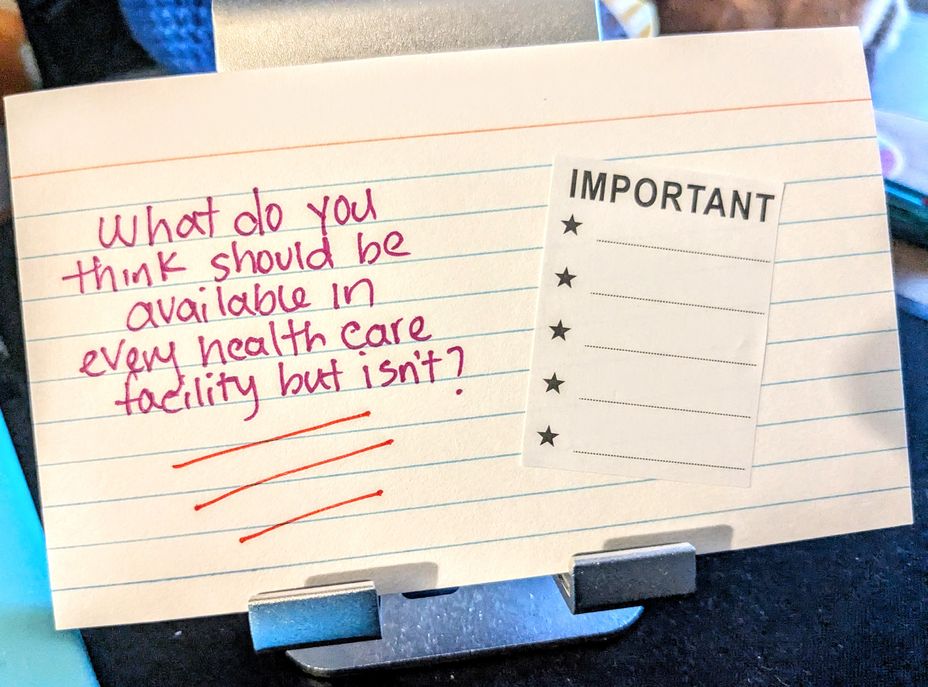 What do you
think should be
available in
every health care
facility but isn't?
IMPORTANT